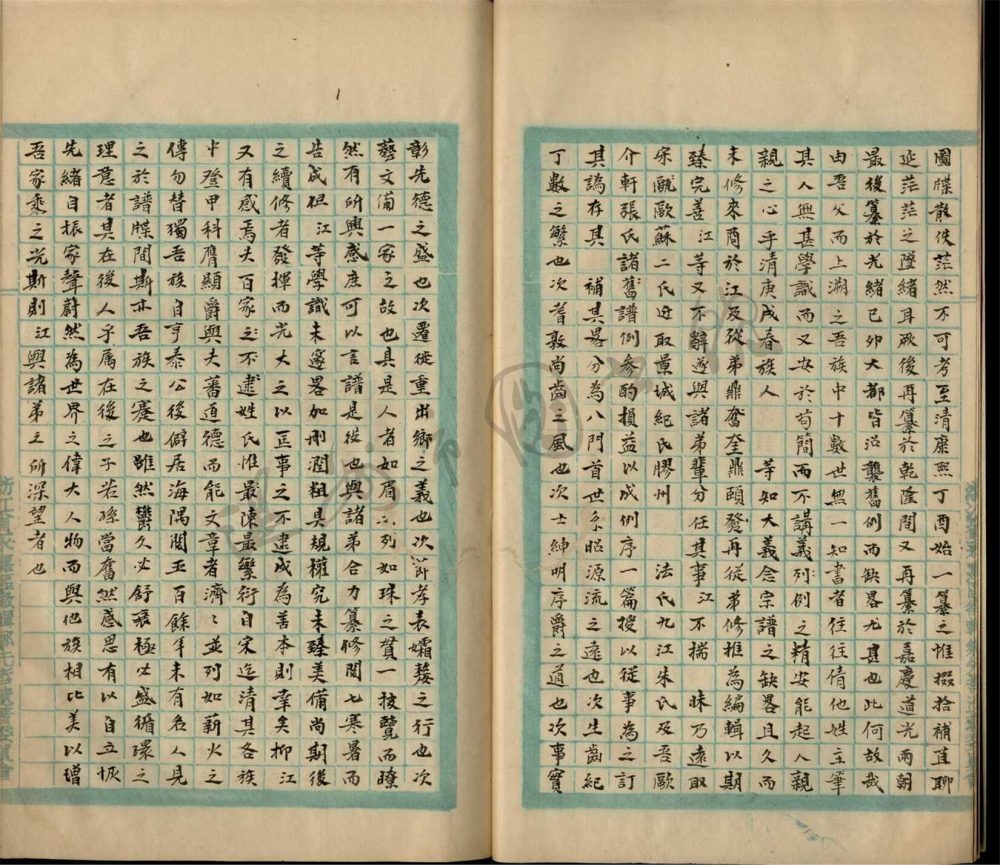 圖牒散佚茫然不可考至清康熙丁酉始一纂之惟掇拾補苴聊
延茫茫之墜緒耳厥後再纂於乾隆間又再纂於嘉慶道光兩朝
最後纂於光緒己卯大都皆沿襲舊例而缺畧尤甚也此何故哉
由吾父而上溯之吾族中十數世無一知書者往往倩他姓主筆
其人無甚學識而又安於苟簡而不講義列例之精安能起人親
親之心乎清庚戌春族人 等知大義念宗譜之缺畧且久而
未修來商於江及從弟鼎奮奎鼎頤發再從弟修推為編輯以期
臻完善江等又不辭遂與諸弟輩分任其事江不揣 昧乃遠取
宋甌歐蘇二氏近取藁城紀氏膠州 法氏九江朱氏及吾甌
介軒張氏諸舊譜例參酌損益以成例序一篇授以從事為之訂
其譌存其 補其畧分為八門首世系昭源流之遠也次生齒紀
丁數之繁也次耆耇尚齒之風也次士紳明序爵之道也次事實
彰先德之盛也次遷徙重出鄉之義也次 孝表孀嫠之行也次
藝文備一家之故也具是人者如眉之列如珠之貫一披覽而瞭
然有所興感庶可以言譜是役也與諸弟合力纂修閱七寒暑而
告成但江等學識未邃畧加刪潤粗具規模究未臻美備尚期後
之續修者發揮而光大之以匡事之不逮成為善本則幸矣抑江
又有感焉夫百家之不逮姓氏惟最陳最繁衍自宋迄清其各族
中登甲科膺顯爵與夫蓄道德而能文章者濟々並列如薪火之
傳勿替獨吾族自亨泰公後僻居海隅閱五百餘年未有名人見
之於譜牒間斯亦吾族之蹇也雖然鬱久必舒衰極必盛循環之
理意者其在後人乎厲在後之子若孫當奮然感思有以自立恢
先緒自振家聲蔚然為世界之偉大人物而與他族相比美以增
吾家乘之光斯則江與諸弟之所深望者也